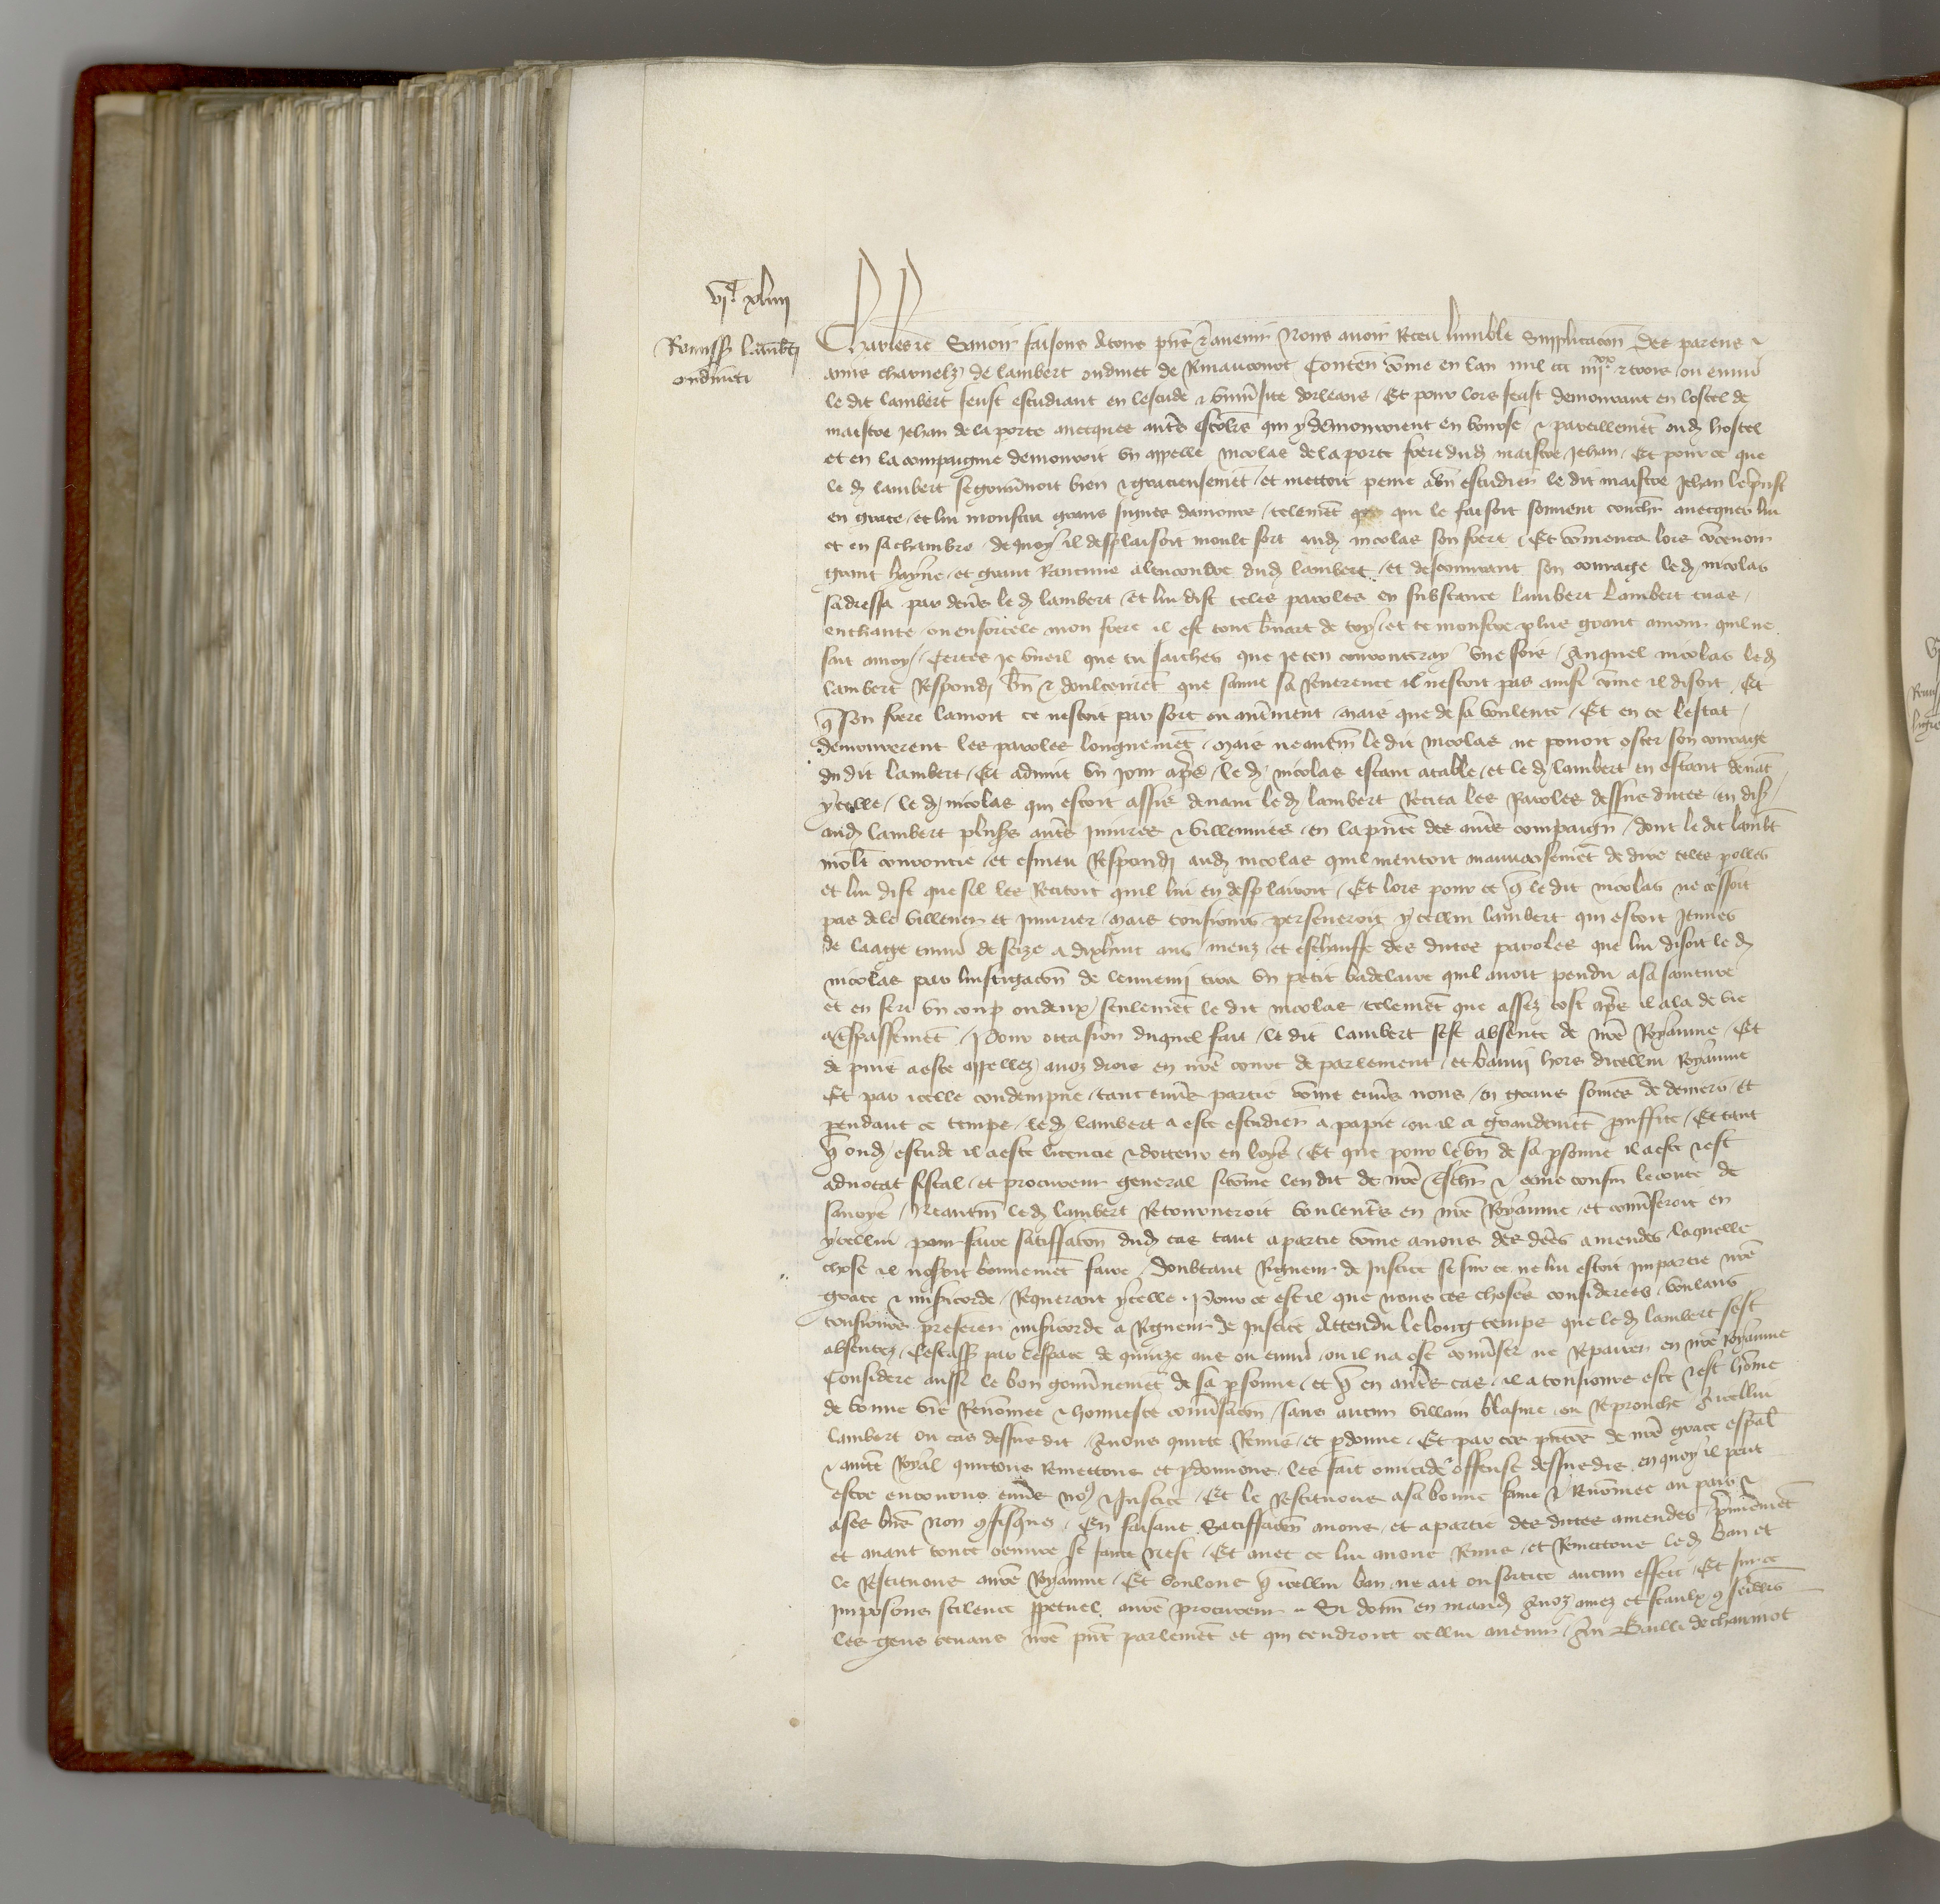 vjc xliiij
Remissio lamb̄ti
oudineti
Charles &c Savoir faisons a tous pn̄s & avenir Nous avoir receu lumble supplicacōn des parens &
amis charnelz de lambert oudinet de Contenāt cōme en lan mil ccc iiijxx & trois ou envirō
le dit lambert feust estudiant en lestude & univ̄site dorleans Et pour lors feust demourant en lostel de
maistre Jehan de la porte avecques aut̄s escoliers qui y demouroient en bourse & pareillemēt oud hostel
et en la compaignie demouroit un appelle Nicolas de la porte frere dud maistre Jehan Et pour ce que
le d lambert se gouv̄noit bien & gracieusemēt et mettoit peine a bn̄ estudier le dit maistre Jehan le prist
en grace et lui monstra grans signes damours telemēt qui le faisoit souvent couch̄r avecques lui
et en sa chambre de quoy il desplaisoit moult fort aud Nicolas son frere Et cōmenca lors concevoir
grant hayne et grant rancune alencontre dud lambert et descouvrant son courage le d nicolas
sadressa par dev̄s le d lambert et lui dist teles paroles en substance lambert lambert tu as
enchante ou ensorcele mon frere il est tout b̄nart de toy et te monstre plus grant amour quil ne
fait a moy Certes Je vueil que tu saiches que Je ten courouceray une fois Auquel nicolas le d
lambert respondi bn̄ & doulcemēt que sauve sa Reverence il nestoit pas ainsi cōme il disoit Et
q̄ son frere lamoit ce nestoit par sort ou aut̄ment mais que de sa voulente Et en ce lestat
demourerent les paroles longuemēt Mais neantm̄ le dit nicolas ne povoit oster son courage
du dit lambert Et advint un jour ap̄s le d nicolas estant a table et le d lambert en estant devāt
ycelle le d nicolas qui estoit assis devant le d lambert recita les paroles dessus dites en dis̄
aud lambert plus̄s aut̄s injures & villennies en la pn̄ce des aut̄s compaign̄ dont le dit lamb̄t
molt courroucie et esmeu respondi aud nicolas quil mentoit mauvaisemēt de dire teles polles
et lui dist que sil les recitoit quil lui en desplairoit Et lors pour ce q̄ le dit nicolas ne cessoit
pas de le villener et injurier mais tousjours perseveroit ycellui lambert qui estoit jeunes
de laage envirō de seize a dixhuit ans meuz et eschauffe des dites paroles que lui disoit le d
nicolas par linstigacōn de lennemi tira un petit badelaire quil avoit pendu a sa sainture
et en feri un coup ou deux seulemēt le dit nicolas telemēt que assez tost ap̄s il ala de vie
a t̄spassemēt Pour occasion duquel fait le dit lambert sest absente de nr̄e Royaume Et
depuis a este appellez a noz drois en nr̄e court de parlement et banny hors dicellui Royaume
Et par icelle condempne tant env̄s partie cōme env̄s nous en grans sōmes de deniers et
pendant ce temps le d lambert a este estudier a papie ou il a grandemēt prouffite Et tant
q̄ oud estude il a este licencie & docteur en loys Et que pour le bn̄ de sa p̄sonne il a este & est
advocat fiscal et procureur general si cōme len dit de nr̄e t̄schr̄ & ame cousin le conte de
savoye Neantm̄ le d lambert retourneroit voulent̄s en nr̄e Royaume et conv̄seroit en
ycellui pour faire satiffacōn dud cas tant a partie cōme a nous des dc̄es amendes laquelle
chose il noseroit bonnemēt faire doubtant rigueur de Justice se sur ce ne lui estoit impartie nr̄e
grace & mis̄icorde requerant ycelle Pour ce est il que nous ces choses considerees voulans
tousjours preferer mis̄icorde a rigueur de justice Attendu le long temps que le d lambert sest
absentez Cestass̄ par lespace de quinze ans ou envirō ou il na ose conv̄ser ne repairer en nr̄e Royaume
Considere aussi le bon gouv̄nemēt de sa p̄sonne et q̄ en aut̄s cas il a tousjours este & est hōme
de bonne vie renōmee & honneste conv̄sacōn sans aucun villain blasme ou reprouche A icellui
lambert ou cas dessus dit Avons quitte remis et p̄donne Et par ces pn̄tes de nr̄e grace esp̄al
& aut̄e royal quittons remettons et p̄donnons les fait omicide offense dessusdis en quoy il peut
estre encouruz env̄s nous & Justice Et le restituons a sa bonne fame & renōmee au pais &
a ses biens non 9fisquez En faisant satiffacōn a nous et a partie des dites amendes p̄mieremēt
et avant toute oeuvre se faite nest Et avec ce lui avons remis et remettons le d ban et
le restituons a nr̄e Royaume Et voulons q̄ icellui ban ne ait ou sortice aucun effect Et sur ce
imposons scilence p̄petuel a nr̄e procureur Si donn̄ en mand A noz amez et feaulx 9seill̄rs
les gens tenans nr̄e pn̄t parlemēt et qui tendront cellui avenir Au Bailli de chaumōt